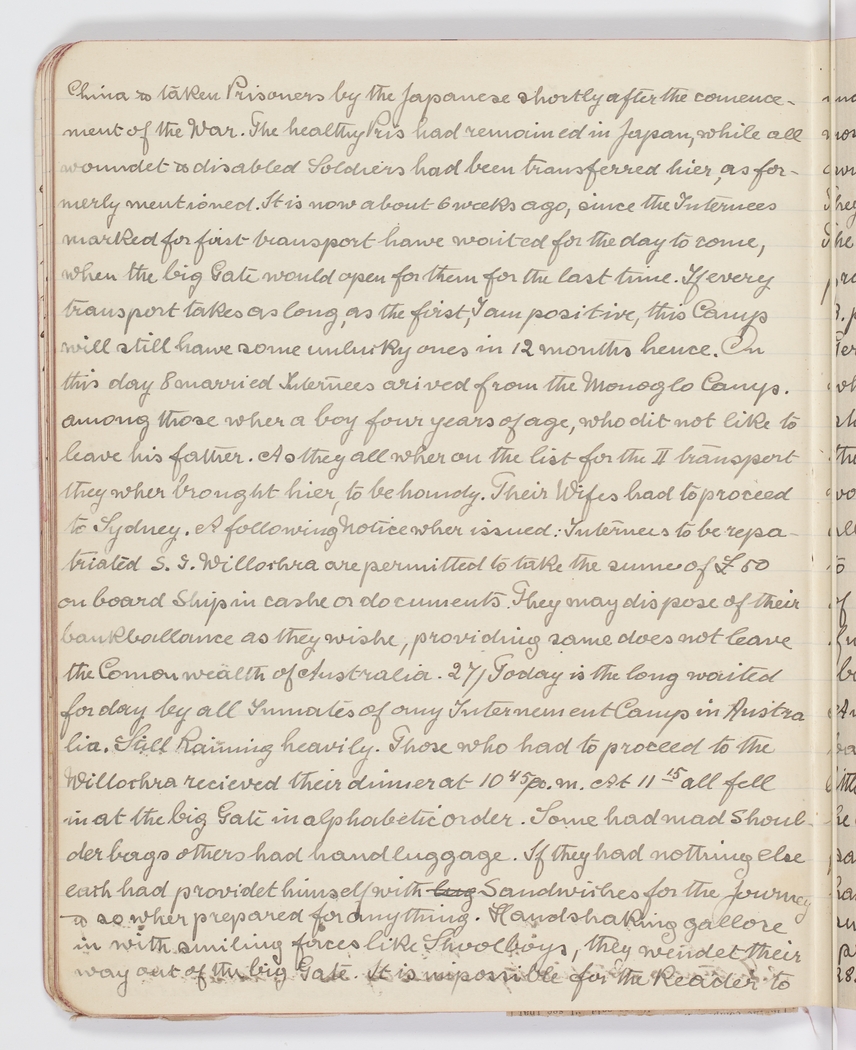 China & taken Prisoners by the Japanese shortly after the comence-
ment of the War. The healthy Pris had remained in Japan, while all
woundet & disabled Soldiers had been transferred hier, as for-
merly mentioned. It is now about 6 weeks ago, since the Internees
marked for first transport hawe waited for the day to come,
when the big Gate would open for them for the last time. If every
transport takes as long, as the first, I am positive, this Camp
will still hawe some unlucky ones in 12 months hence. On
this day 8 married Internees arived from the Monoglo Camp.
among those wher a boy four years of age, who dit not like to
leave his father. As they all wher on the list for the II transport
they wher brought hier, to be handy. Their Wifes had to proceed
to Sydney. A following Notice wher issued: Internees to be repa-
triated S. S. Willochra are permitted to take the sume of £50
on board Ship in cashe or documents. They may dispose of their
bankballance as they wishe, providing same does not leave
the Comonwealth of Australia. 27/ Today is the long waited
for day by all Inmates of any Internement Camp in Austra
lia. Still Raining heavily. Those who had to proceed to the
Willochra recieved their dinner at 10 45/a.m. At 11 15 all fell
in at the big Gate in alphabetic order. Some had mad Shoul-
der bags others had hand luggage. If they had nothing else
each had providet himself with bug Sandwishes for the Journey
& so wher prepared for anything. Handshaking gallore
in with smiling faces like Shoolboys, they wendet their
way out of the big Gate. It is impossible for the Reader to